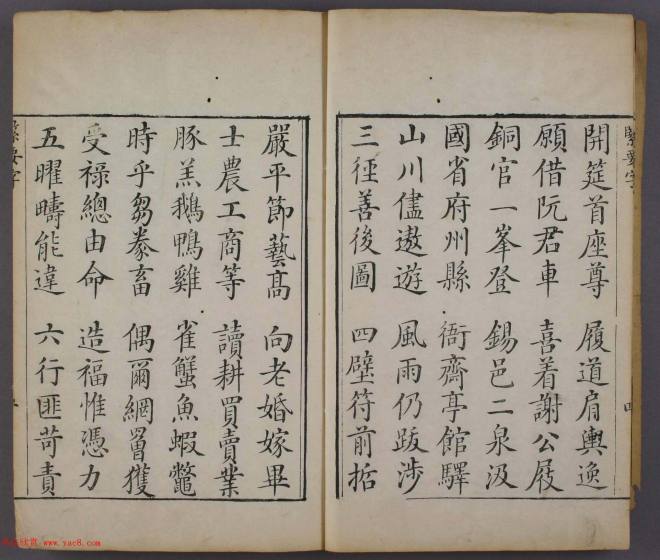 開筵首座尊 履道肩輿逸
願借阮君車 喜着謝公屐
銅官一峯登 錫邑二泉汲
國省府州縣 衙齋亭館驛
山川儘遨遊 風雨仍跋涉
三徑善後圖 四壁符前哲
嚴平節藝高 向老婚嫁畢
士農工商等 讀耕買賣業
豚羔鵝鴨雞 雀蟹魚蝦鼈
時乎芻豢畜 偶爾網罾獲
受祿總由命 造福惟憑力
五曜疇能違 六行匪苛責
www.yac8.com